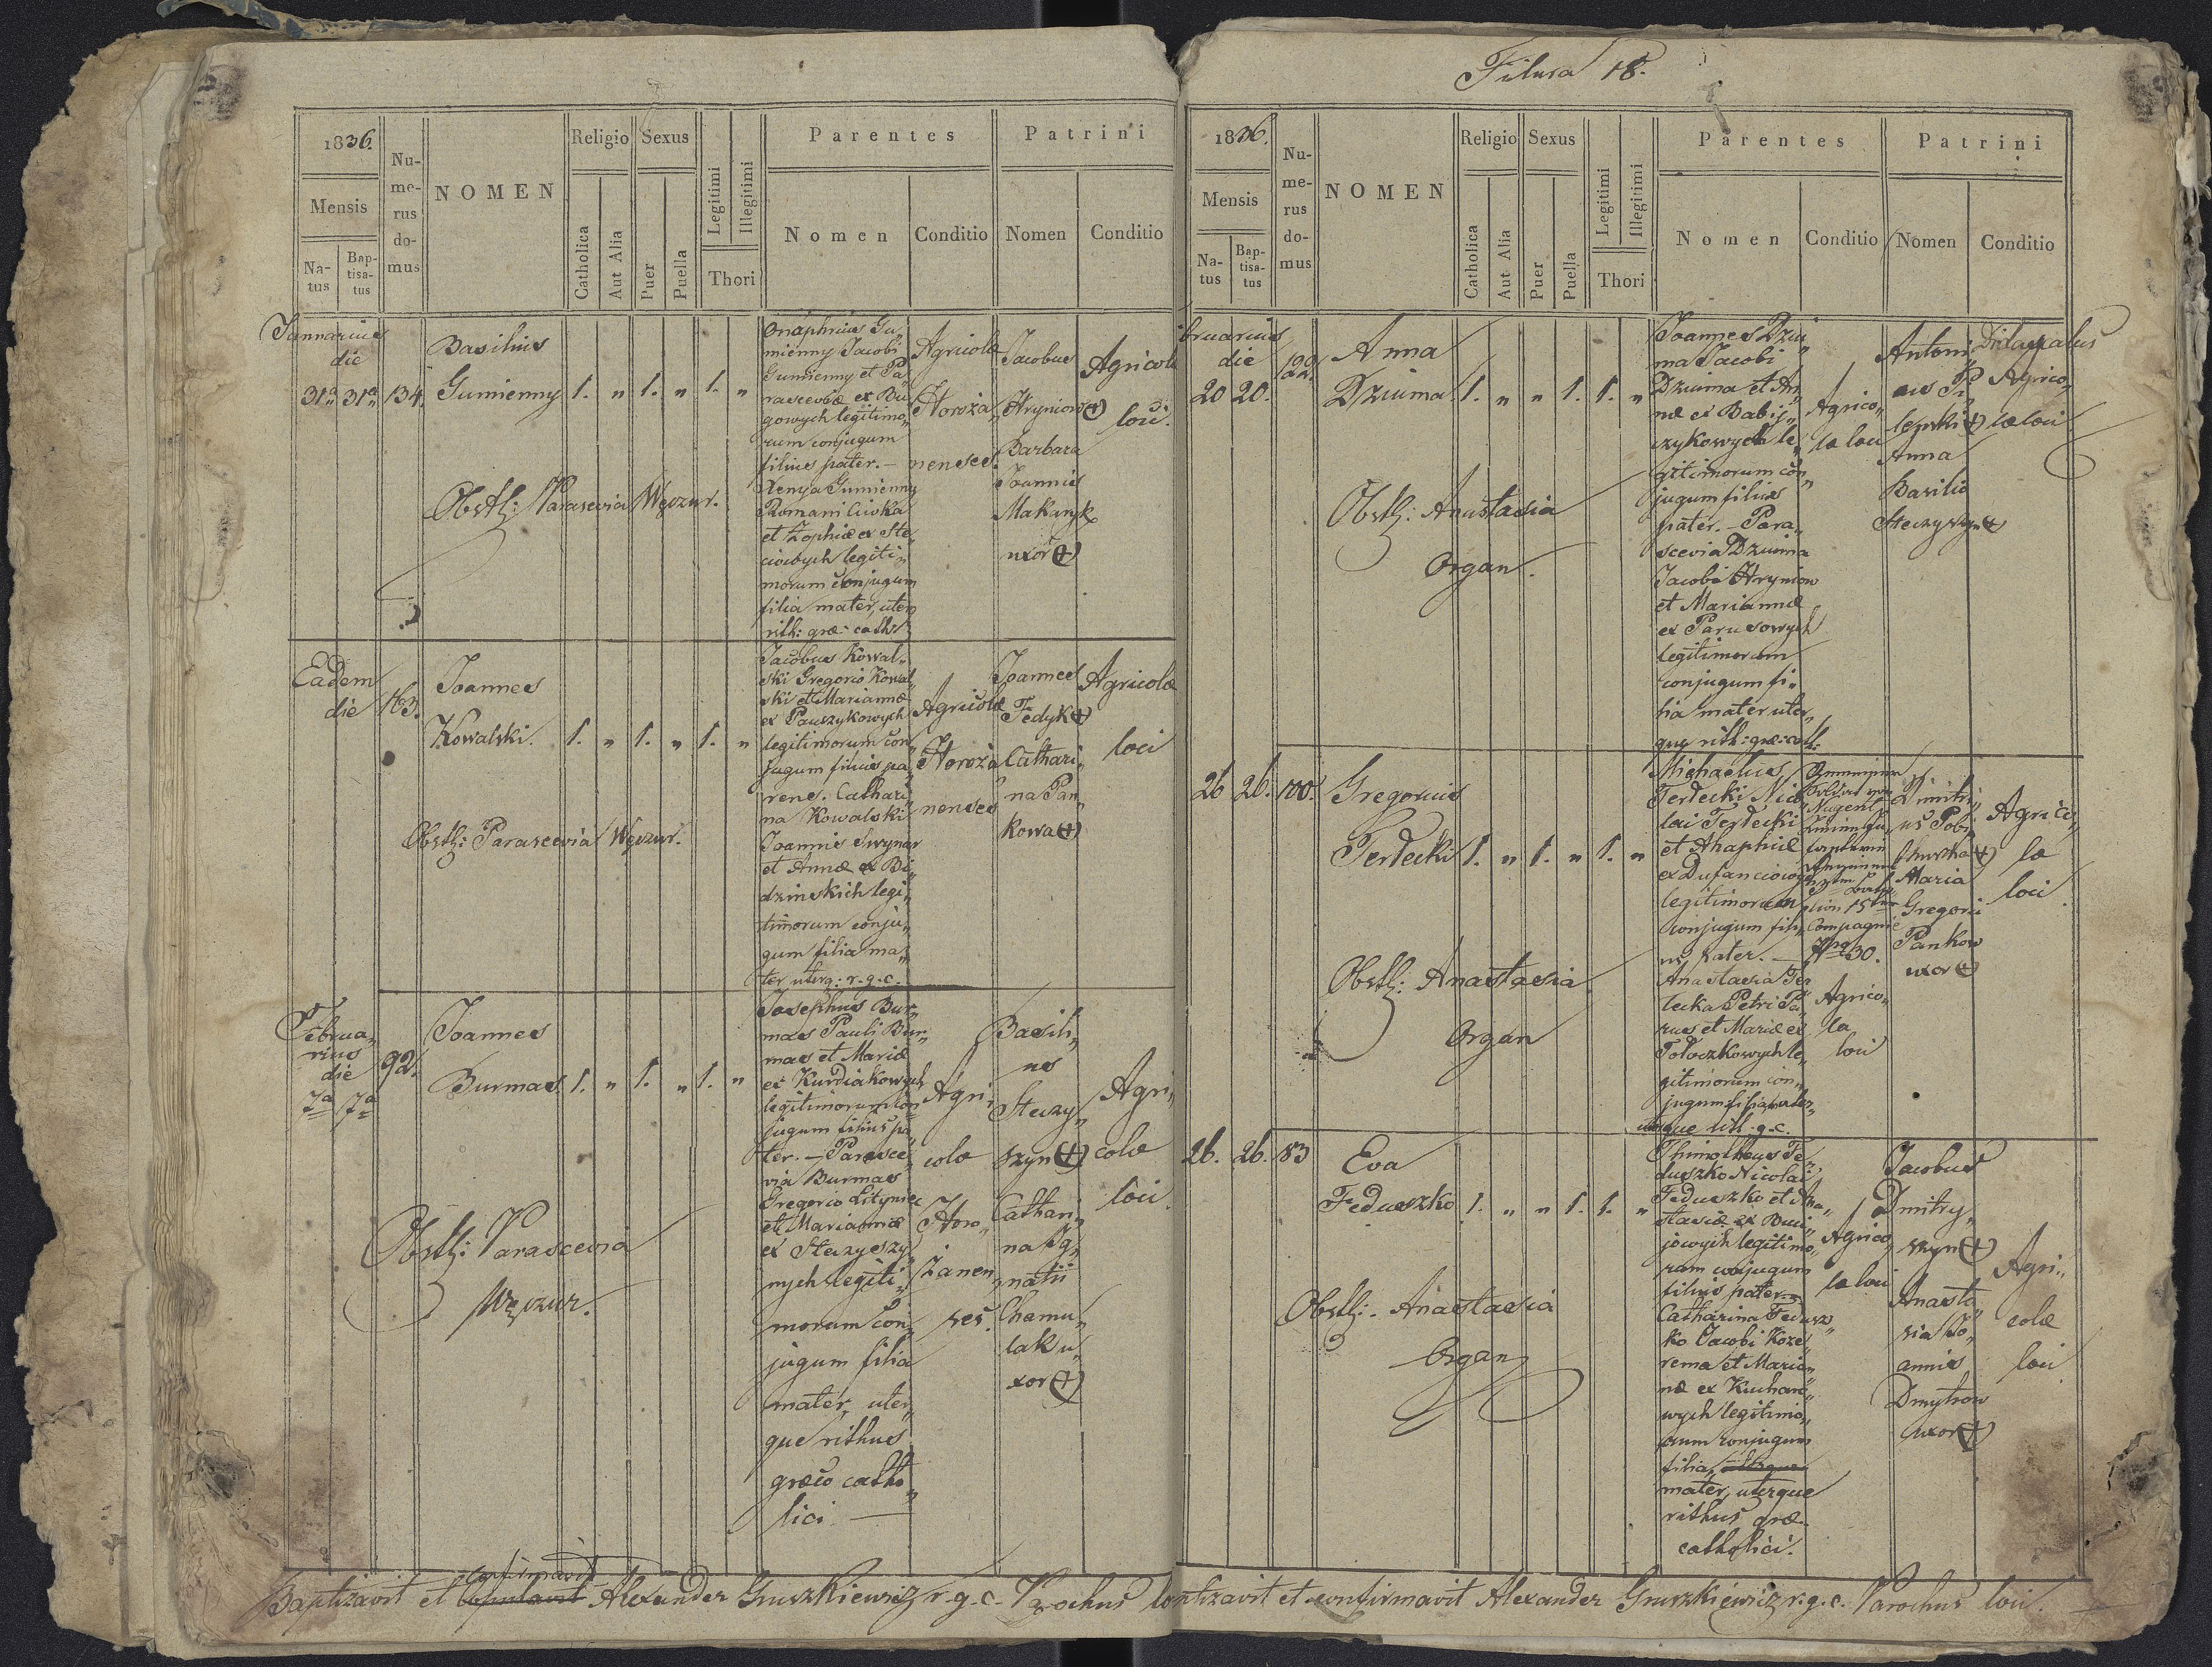 1836.
Mensis
Na-
tus
Bap-
tisa-
tus
Nu-
me-
rus
do-
mus
NOMEN
Religio
Catholica
Aut Alia
Sexus
Puer
Puella
Legitimi
Illegitimi
Thori
Parentes
Nomen
Conditio
Patrini
Nomen
Conditio
Januarius
die
31a 31a 134.
Basilius
Gumienny 1. „ 1. „ 1. „
Obsth: Parascevia Węczur.
Onaphrius Gu„
mienny Jacobi
Gumienny et Pa„
rasceviæ ex Bu„
gowych legitimo„
rum conjugum
filius pater. —
Xenya Gumienny
Romani Civka
et Zophiæ ex Ste„
ciowych legiti„
morum conjugum
filia mater, uterq
rith: græ: cath:
Agricolæ
Horoża„
nenses.
Jacobus
Hryniow (+)
Barbara
Joannis
Makaryk
uxor (+)
Agricolæ
loci.
Eadem
die 163.
Joannes
Kowalski. 1. „ 1. „ 1. „
Obsth: Parascevia Węczur.
Jacobus Kowal„
ski Gregorio Kowal„
ski et Mariannæ
ex Pauszykowych
legitimorum con„
jugum filius pa„
rens. Cathari„
na Kowalski
Joannis Swynar
et Annæ ex Bi„
dzinskich legi„
timorum conju„
gum filia ma„
ter uterq: r.g.c.
Agricolæ
Horoża„
nenses
Joannes
Fedyk (+)
Cathari„
na Pan„
kowa (+)
Agricolæ
loci
Februa„
rius
die
7a 7a 92.
Joannes
Burmas 1. „ 1. „ 1. „
Obsth: Parascevia
Węczur.
Josephus Bur„
mas Pauli Bur„
mas et Mariæ
ex Kurdiakowych
legitimorum con„
jugum filius pa„
ter. — Parasce„
via Burmas
Gregorio Litynie
et Mariannæ
ex Steczyszy„
nych legiti„
morum con„
jugum filia
mater, uter„
que rithus
græco catho„
lici —
Agri„
colæ
Horo„
żanen„
ses.
Basili„
us
Steczy„
szyn (+)
Cathari„
na Ig„
natii
Chamu„
lak u„
xor (+)
Agri„
colæ
loci.
Baptizavit et confirmavit Alexander Gruszkiewicz r.g.c. Parochus
Filusa 18.
1836.
Mensis
Na-
tus
Bap-
tisa-
tus
Nu-
me-
rus
do-
mus
NOMEN
Religio
Catholica
Aut Alia
Sexus
Puer
Puella
Legitimi
Illegitimi
Thori
Parentes
Nomen
Conditio
Patrini
Nomen
Conditio
bruarius
die
20 20.
Anna
Dziuma 1. „ „ 1. 1. „
Obsth: Anastasia
Organ.
Joannes Dziu„
ma Jacobi
Dziuma et An„
næ ex Babij„
czykowych le„
gitimorum con„
jugum filius
pater. — Para„
scevia Dziuma
Jacobi Hryniow
et Mariannæ
ex Parusowych
legitimorum
conjugum fi„
lia mater uter„
que rith: græ: cath:
Agrico„
la loci
Antoni„
us Pi„
lepski (+)
Anna
Basilio
Steczyszyn (+)
Didaskalus
Agrico„
læ loci
26 26. 100.
Gregorius
Terlecki 1. „ 1. „ 1. „
Obsth: Anastasia
Organ
Michaelus
Terlecki Nico
lai Terlecki
et Ahaphiæ
ex Dufanciowych
legitimorum
conjugum fili„
us pater. —
Anastasia Ter
lecka Petri Pa„
rus et Mariæ ex
Tołoczkowych le„
gitimorum con„
jugum filia mater„
uterque rith. g.c.
Nugent
15
Compagnie
Nro 30.
Agrico„
la
loci
Dmitri„
us Pobi„
huszka (+)
Maria
Gregorii
Pankow
uxor (+)
Agrico„
læ
loci.
26. 26. 83
Eva
Feduszko 1. „ „ 1. 1. „
Obsth: Anastasia
Organ
Thimotheus Fe„
duszko Nicolai
Feduszko et Ana„
stasiæ ex Bui„
jowych legitimo„
rum conjugum
filius pater. —
Catharina Fedusz„
ko Jacobi Koze„
rema et Marian„
næ ex Kuharo„
wych legitimo„
rum conjugum
filia, uterque
mater, uterque
rithus græ.
catholici.
Agrico„
la loci
Jacobus
Dmitry„
szyn (+)
Anasta„
sia Jo„
annis
Dmytrow
uxor (+)
Agri„
colæ
loci.
Baptizavit et confirmavit Alexander Gruszkiewicz r.g.c. Parochus loci.